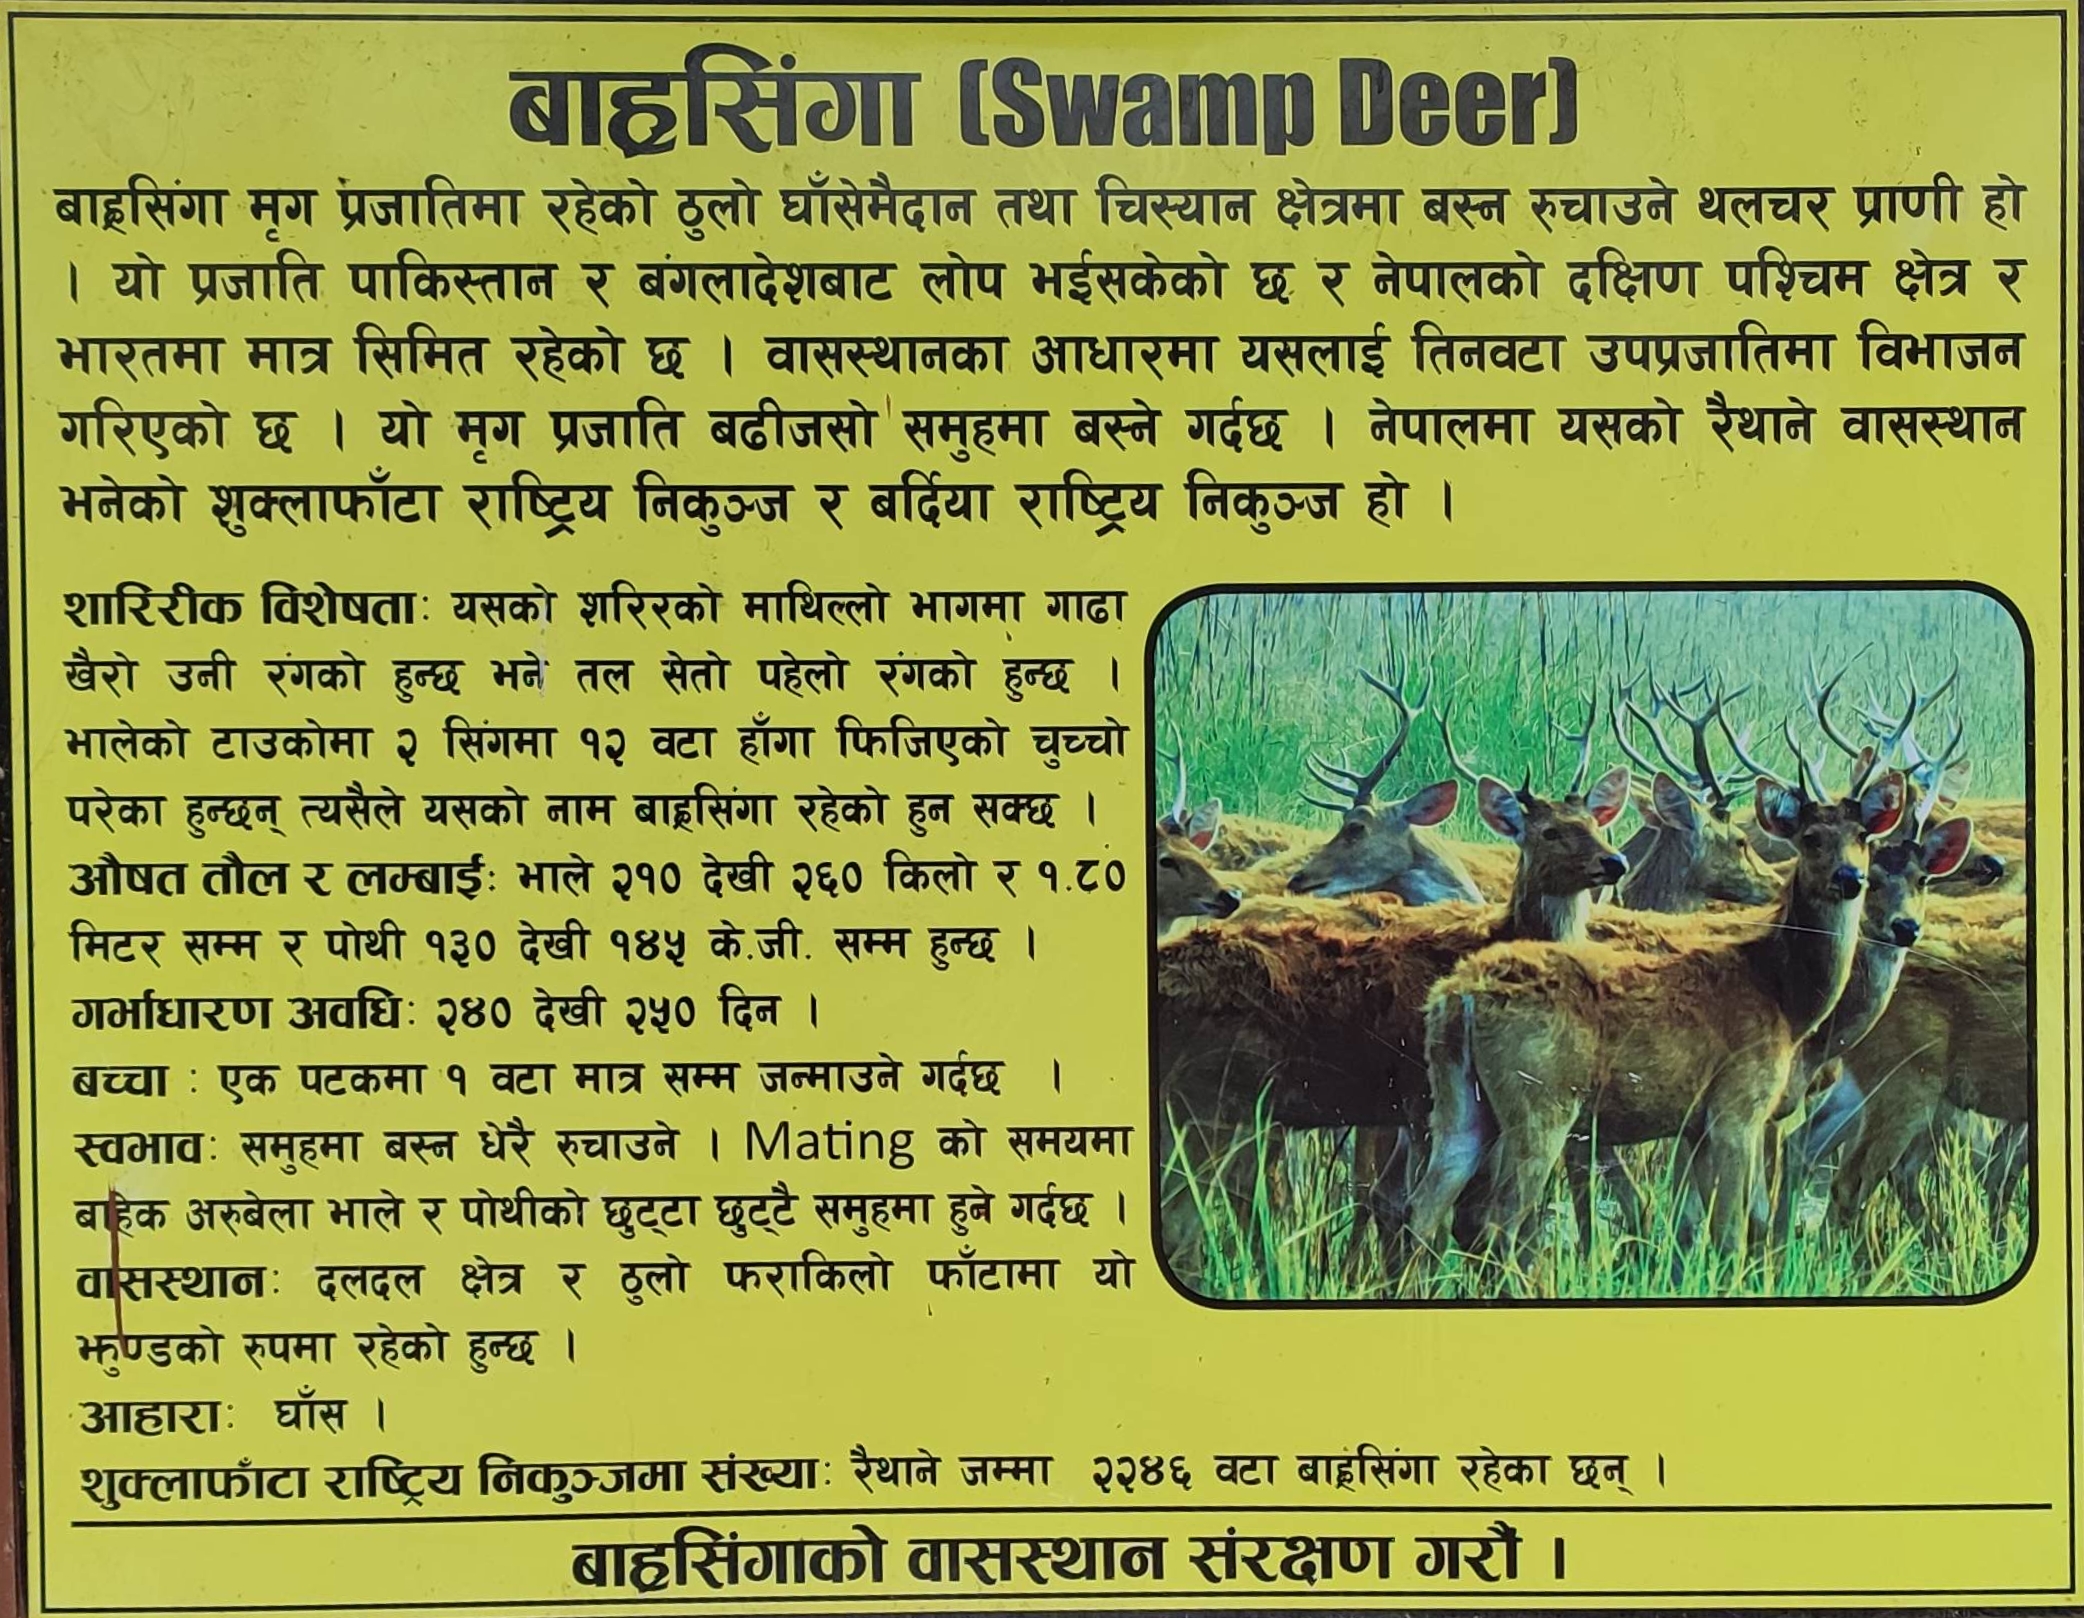 बाह्रसिंगा (Swamp Deer)
बाह्रसिंगा मृग प्रजातिमा रहेको ठुलो घाँसेमैदान तथा चिस्यान क्षेत्रमा बस्न रुचाउने थलचर प्राणी हो
। यो प्रजाति पाकिस्तान र बंगलादेशबाट लोप भईसकेको छ र नेपालको दक्षिण पश्चिम क्षेत्र र
भारतमा मात्र सिमित रहेको छ । वासस्थानका आधारमा यसलाई तिनवटा उपप्रजातिमा विभाजन
गरिएको छ । यो मृग प्रजाति बढीजसो समुहमा बस्ने गर्दछ । नेपालमा यसको रैथाने वासस्थान
भनेको शुक्लाफाँटा राष्ट्रिय निकुञ्ज र बर्दिया राष्ट्रिय निकुञ्ज हो ।
शारिरीक विशेषताः यसको शरिरको माथिल्लो भागमा गाढा
खैरो उनी रंगको हुन्छ भने तल सेतो पहेलो रंगको हुन्छ ।
भालेको टाउकोमा २ सिंगमा १२ वटा हाँगा फिजिएको चुच्चो
परेका हुन्छन् त्यसैले यसको नाम बाह्रसिंगा रहेको हुन सक्छ ।
औषत तौल र लम्बाईः भाले २१० देखी २६० किलो र १.८०
मिटर सम्म र पोथी १३० देखी १४५ के.जी. सम्म हुन्छ ।
गर्भाधारण अवधिः २४० देखी २५० दिन ।
बच्चा : एक पटकमा १ वटा मात्र सम्म जन्माउने गर्दछ ।
स्वभावः समुहमा बस्न धेरै रुचाउने । Mating को समयमा
बाहेक अरुबेला भाले र पोथीको छुट्टा छुट्टै समुहमा हुने गर्दछ ।
वासस्थानः दलदल क्षेत्र र ठुलो फराकिलो फाँटामा यो
झुण्डको रुपमा रहेको हुन्छ ।
आहाराः घाँस ।
शुक्लाफाँटा राष्ट्रिय निकुञ्जमा संख्याः रैथाने जम्मा २२४६ वटा बाह्रसिंगा रहेका छन् ।
बाह्रसिंगाको वासस्थान संरक्षण गरौं ।